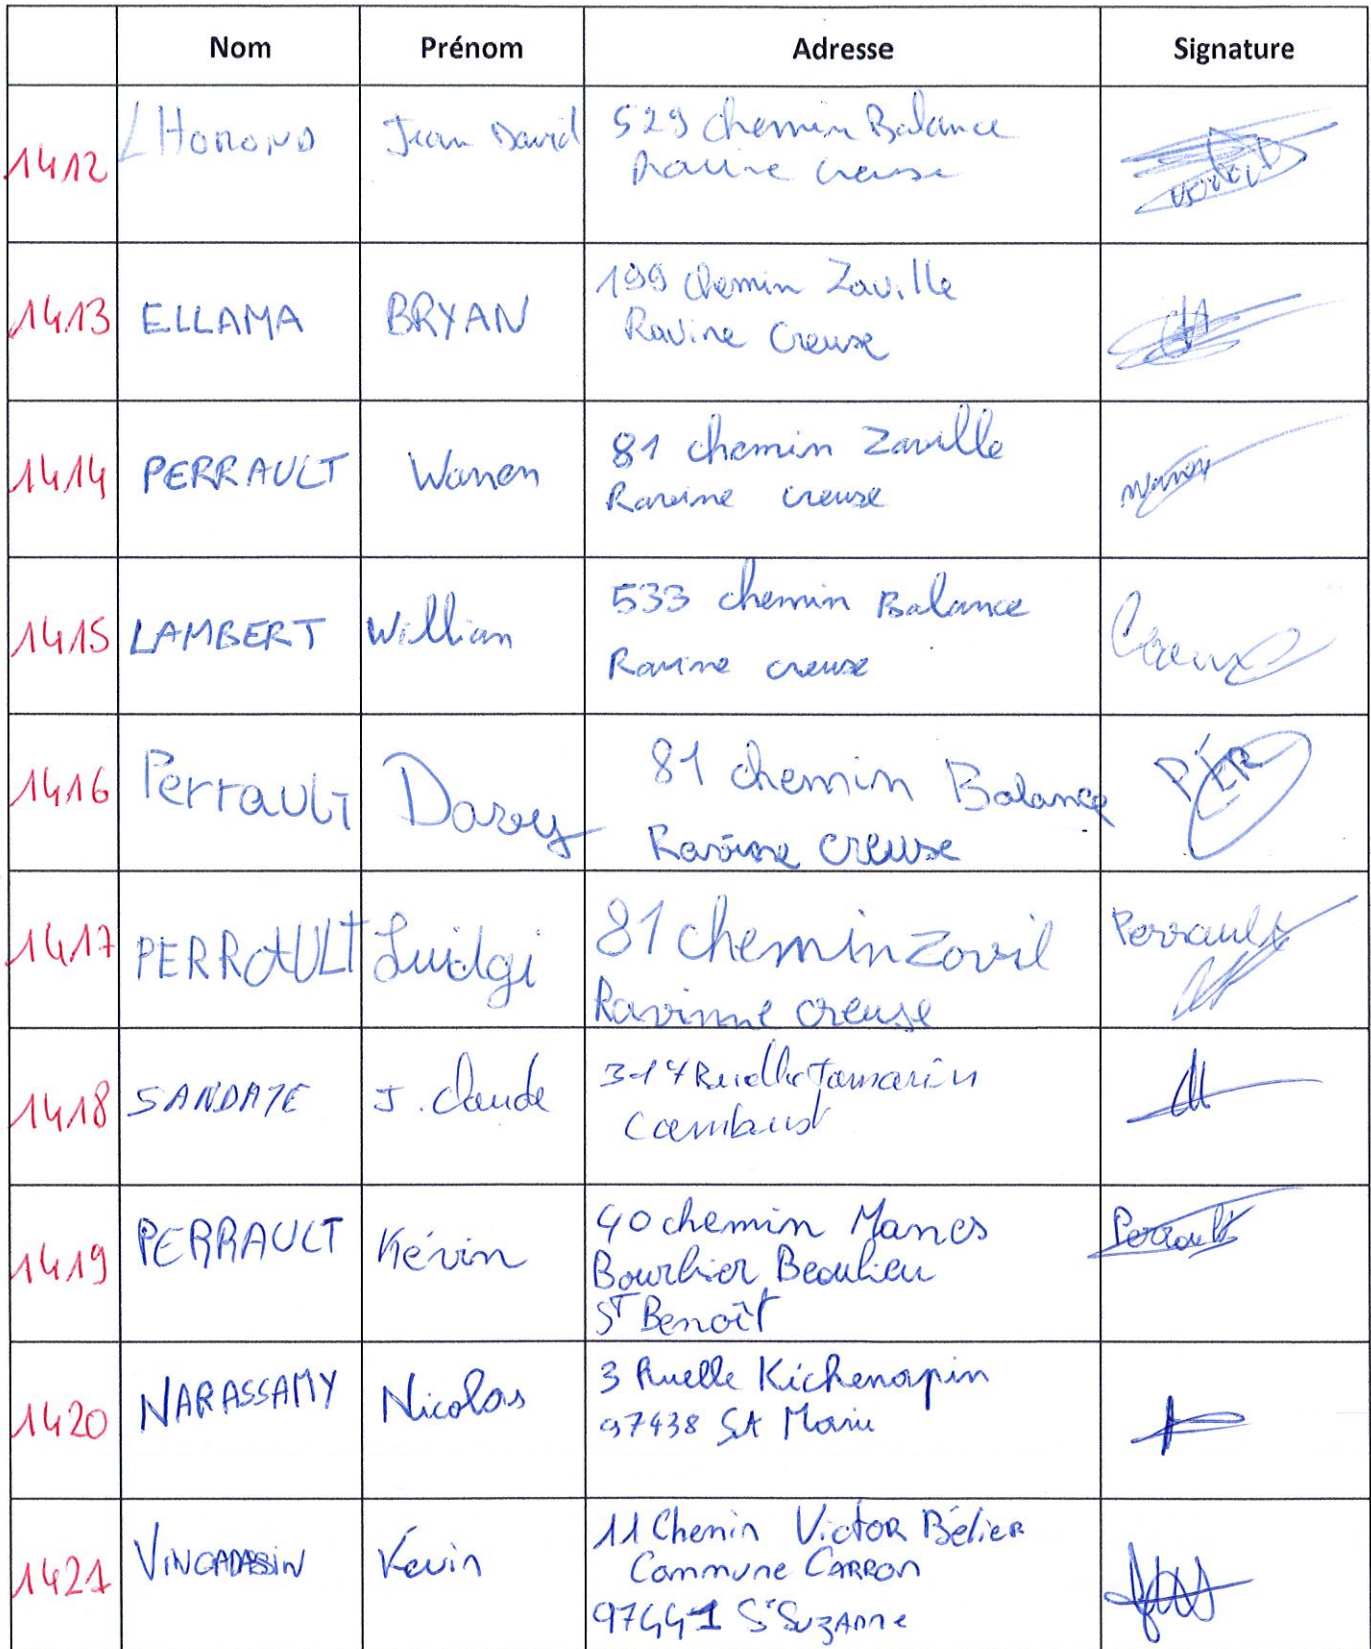 Nom Prénom Adresse Signature
1412 LHOROND Jean David 529 chemin Balance
Ravine creuse
1413 ELLAMA BRYAN 199 chemin Zaville
Ravine Creuse
1414 PERRAULT Warren 81 chemin Zaville
Ravine creuse
1415 LAMBERT William 533 chemin Balance
Ravine creuse
1416 Perrault Davy 81 chemin Balance PER
Ravine creuse
1417 PERRAULT Luidgi 81 chemin Zovil Perrault
Ravinne creuse
1418 J. Claude 314 Ruelle Tamarin
Cambust
1419 PERRAULT Kévin 40 chemin Manes Perrault
Bourbier Beaulieu
ST Benoît
1420 NARASSAMY Nicolas 3 Ruelle Kichenapin
97438 St Marie
1421 VINGADASSIN Kevin 11 Chemin Victor Bélier
Commune CARRON
97441 St SuzAnne